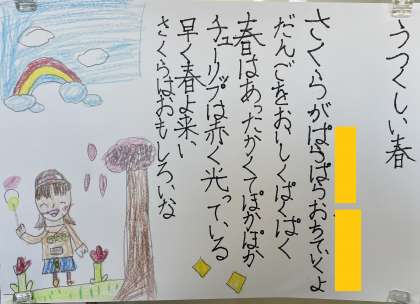 うつくしい春
さくらがぱらぱらおちていくよ
だんごをおいしくぱくぱく
春はあったかくてぽかぽか
チューリップは赤く光っている
早く春よ来い
さくらはおもしろいな